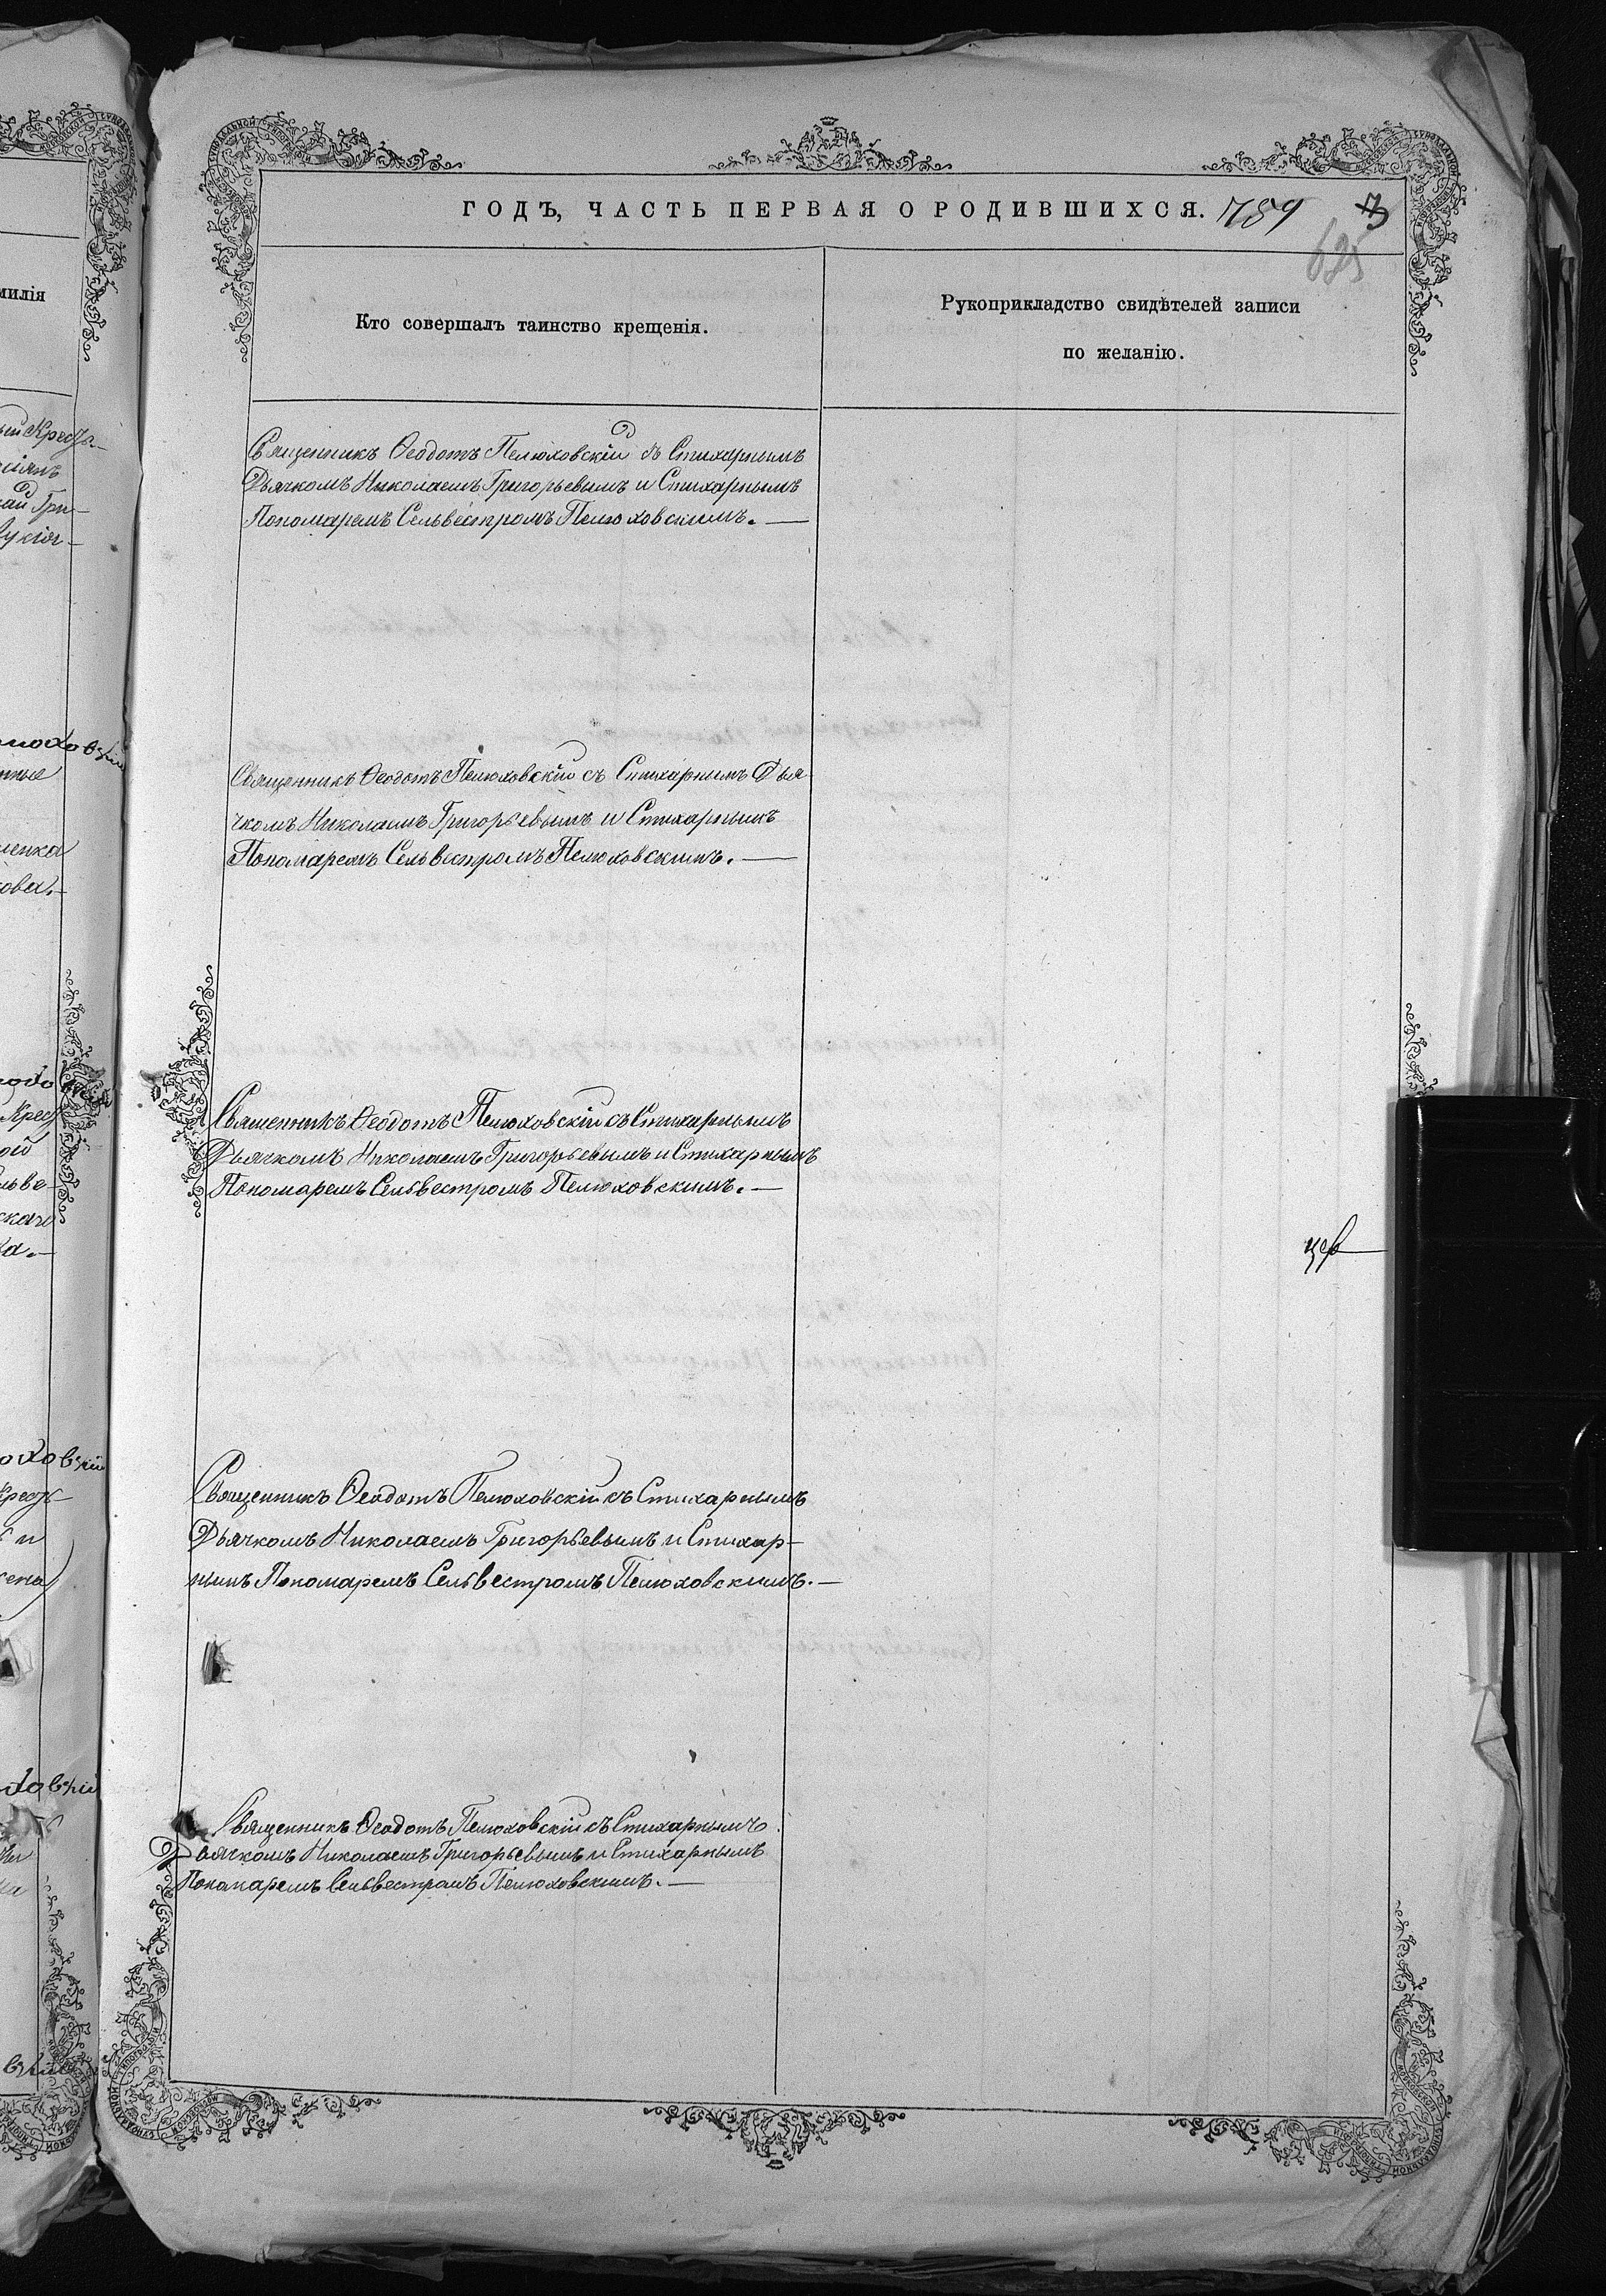 ГОДЪ, ЧАСТЬ ПЕРВАЯ О РОДИВШИХСЯ. 789
625
Кто совершалъ таинство крещенія.
Рукоприкладство свидѣтелей записи
по желанію.
Священникъ Ѳеодотъ Пелюховскій съ Стихарнымъ
Дьячкомъ Николаемъ Григорьевымъ и Стихарнымъ
Пономаремъ Сельвестромъ Пелюховскимъ. —
Священникъ Ѳеодотъ Пелюховскій съ Стихарнымъ Дья
чкомъ Николаемъ Григорьевымъ и Стихарнымъ
Пономаремъ Сельвестромъ Пелюховскимъ. —
Священникъ Ѳеодотъ Пелюховскій съ Стихарнымъ
Дьячкомъ Николаемъ Григорьевымъ и Стихарнымъ
Пономаремъ Сельвестромъ Пелюховскимъ. —
Священникъ Ѳеодотъ Пелюховскій съ Стихарнымъ
Дьячкомъ Николаемъ Григорьевымъ и Стихар-
нымъ Пономаремъ Сельвестромъ Пелюховскимъ. —
Священникъ Ѳеодотъ Пелюховскій съ Стихарнымъ
Дьячкомъ Николаемъ Григорьевымъ и Стихарнымъ
Понамаремъ Сельвестромъ Пелюховскимъ. —